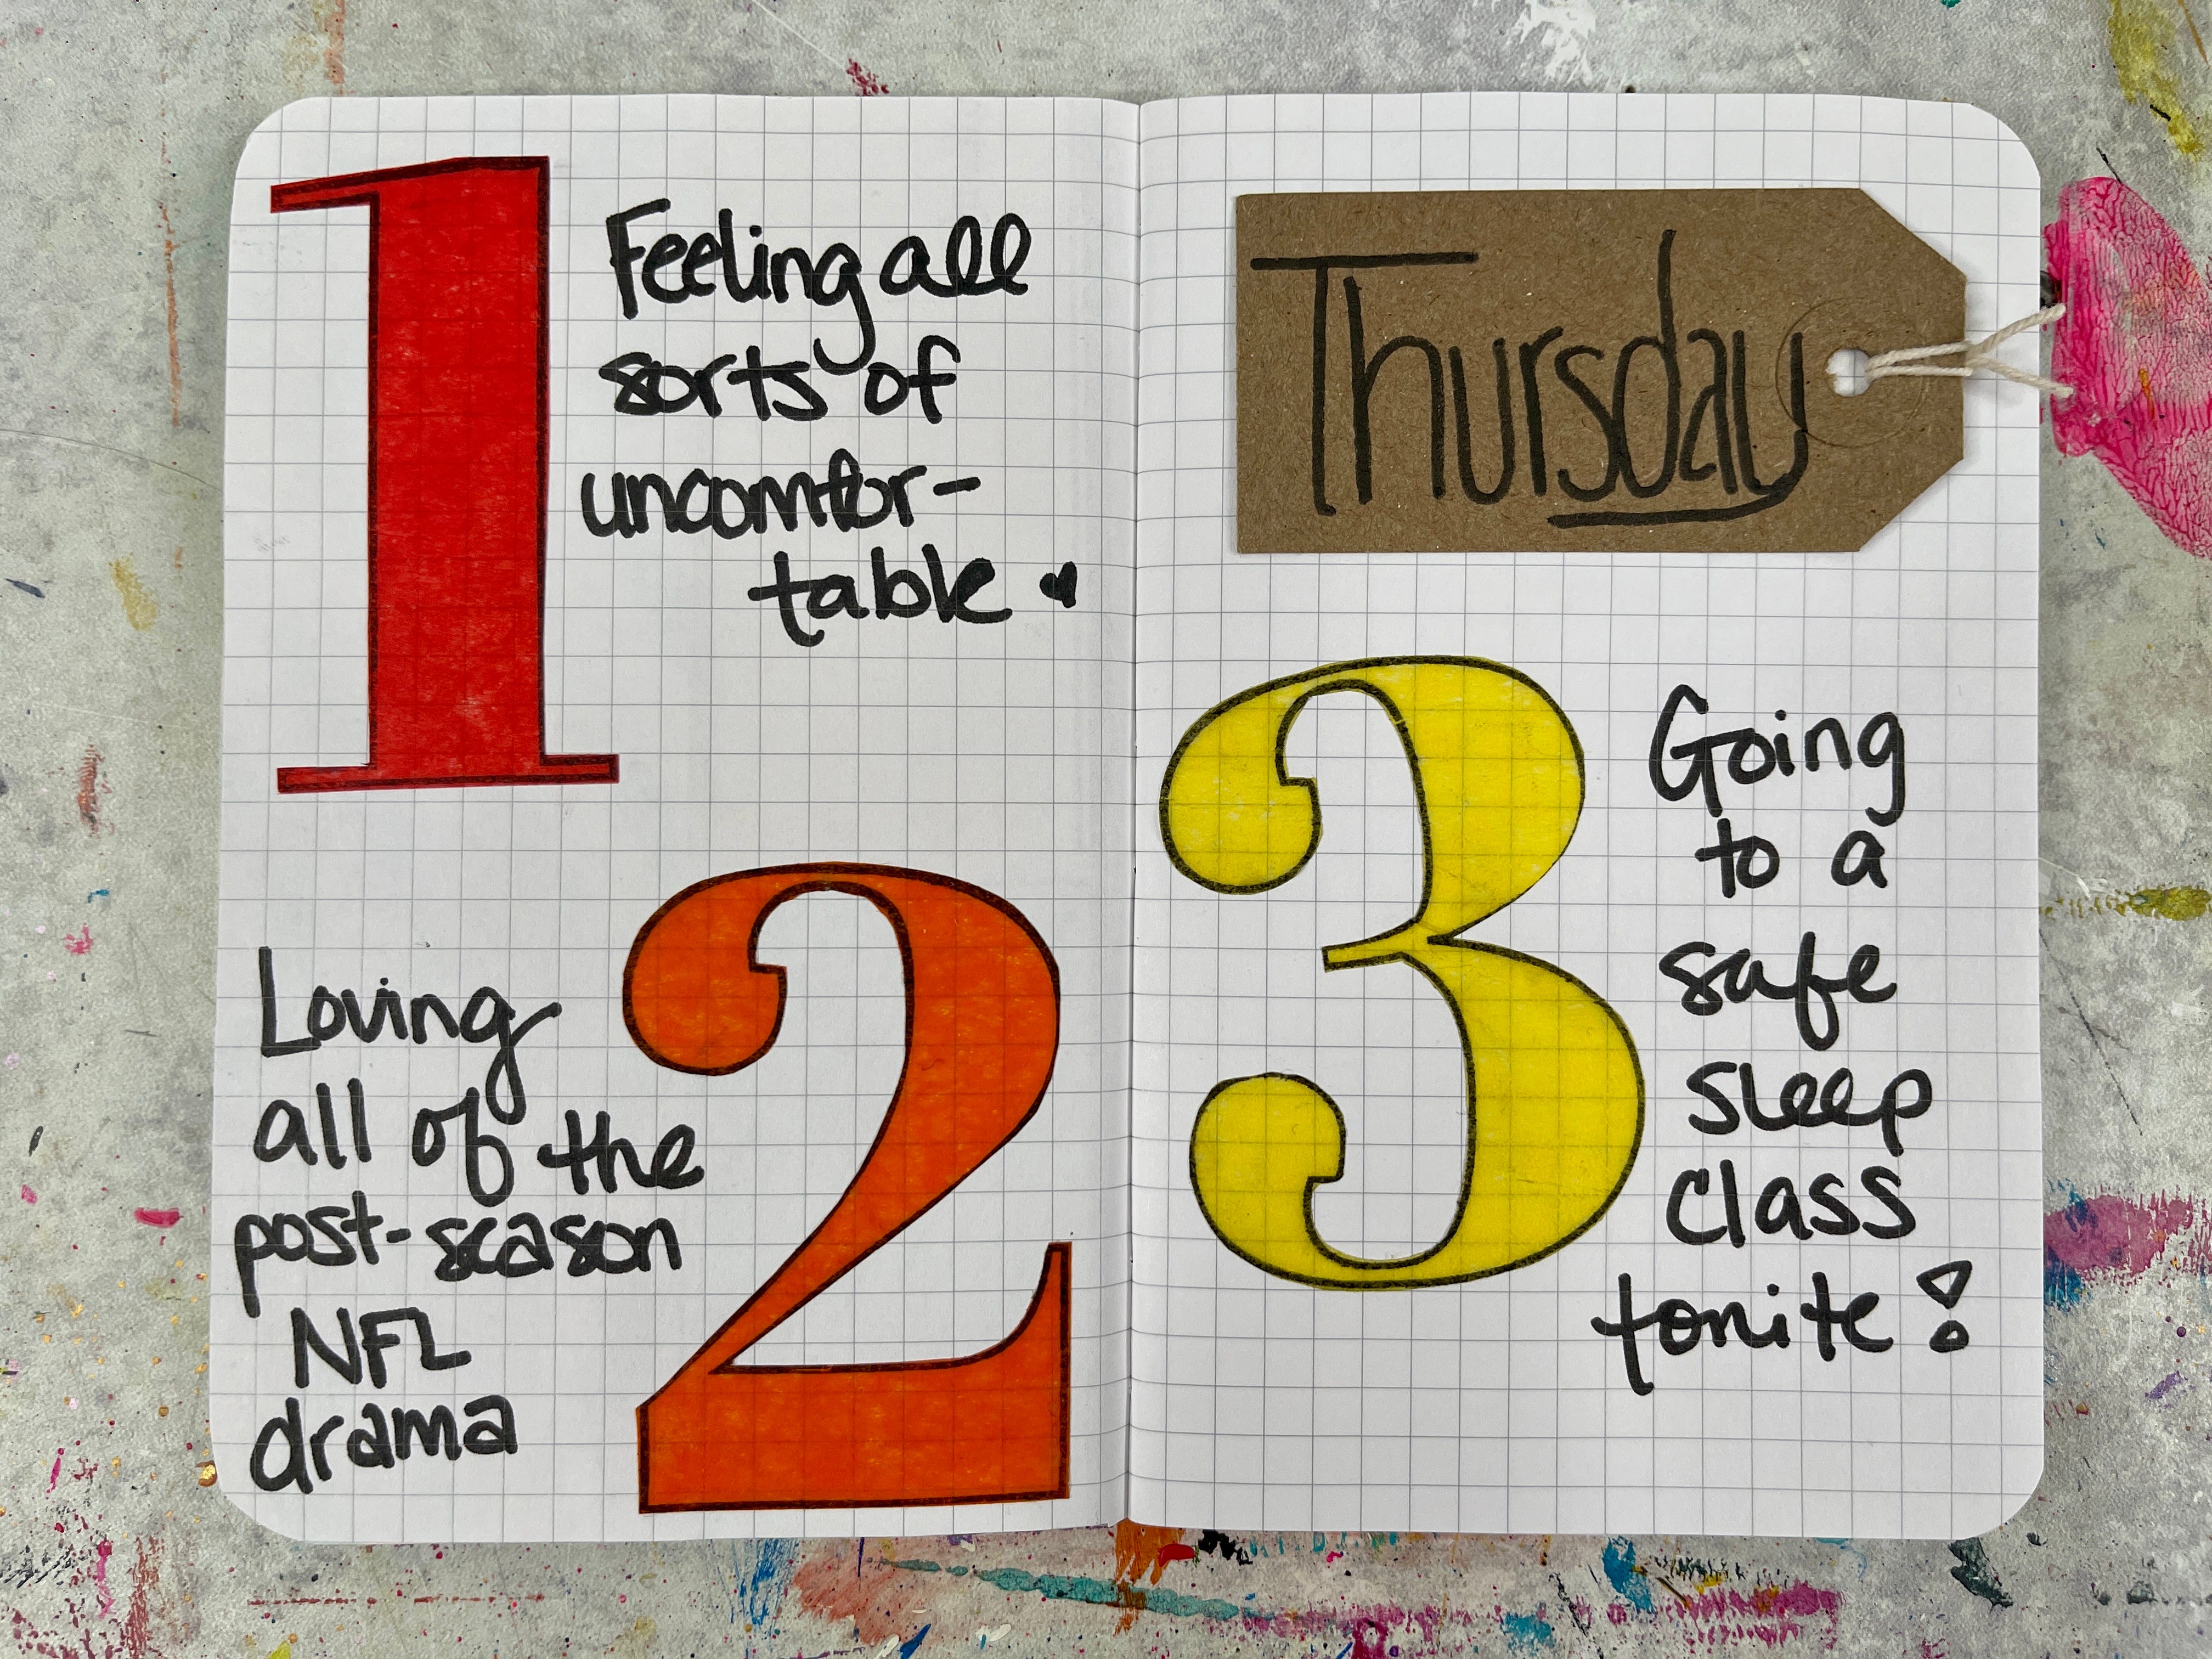 1
Feeling all
sorts of
uncomfor-
table
2
Loving
all of the
post-season
NFL
drama
Thursday
3
Going
to a
safe
sleep
class
tonite!